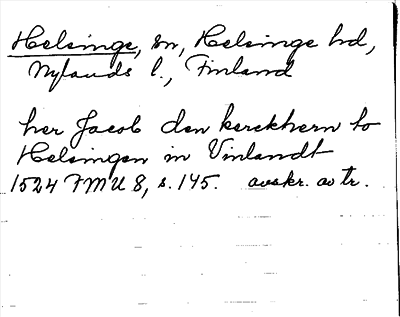 Helsinge, sn, Helsinge hd,
Nylands l., Finland
her Jacob den kerckhern to
Helsingen in Vinlandt
1524 FMU 8, s. 145. avskr. av tr.